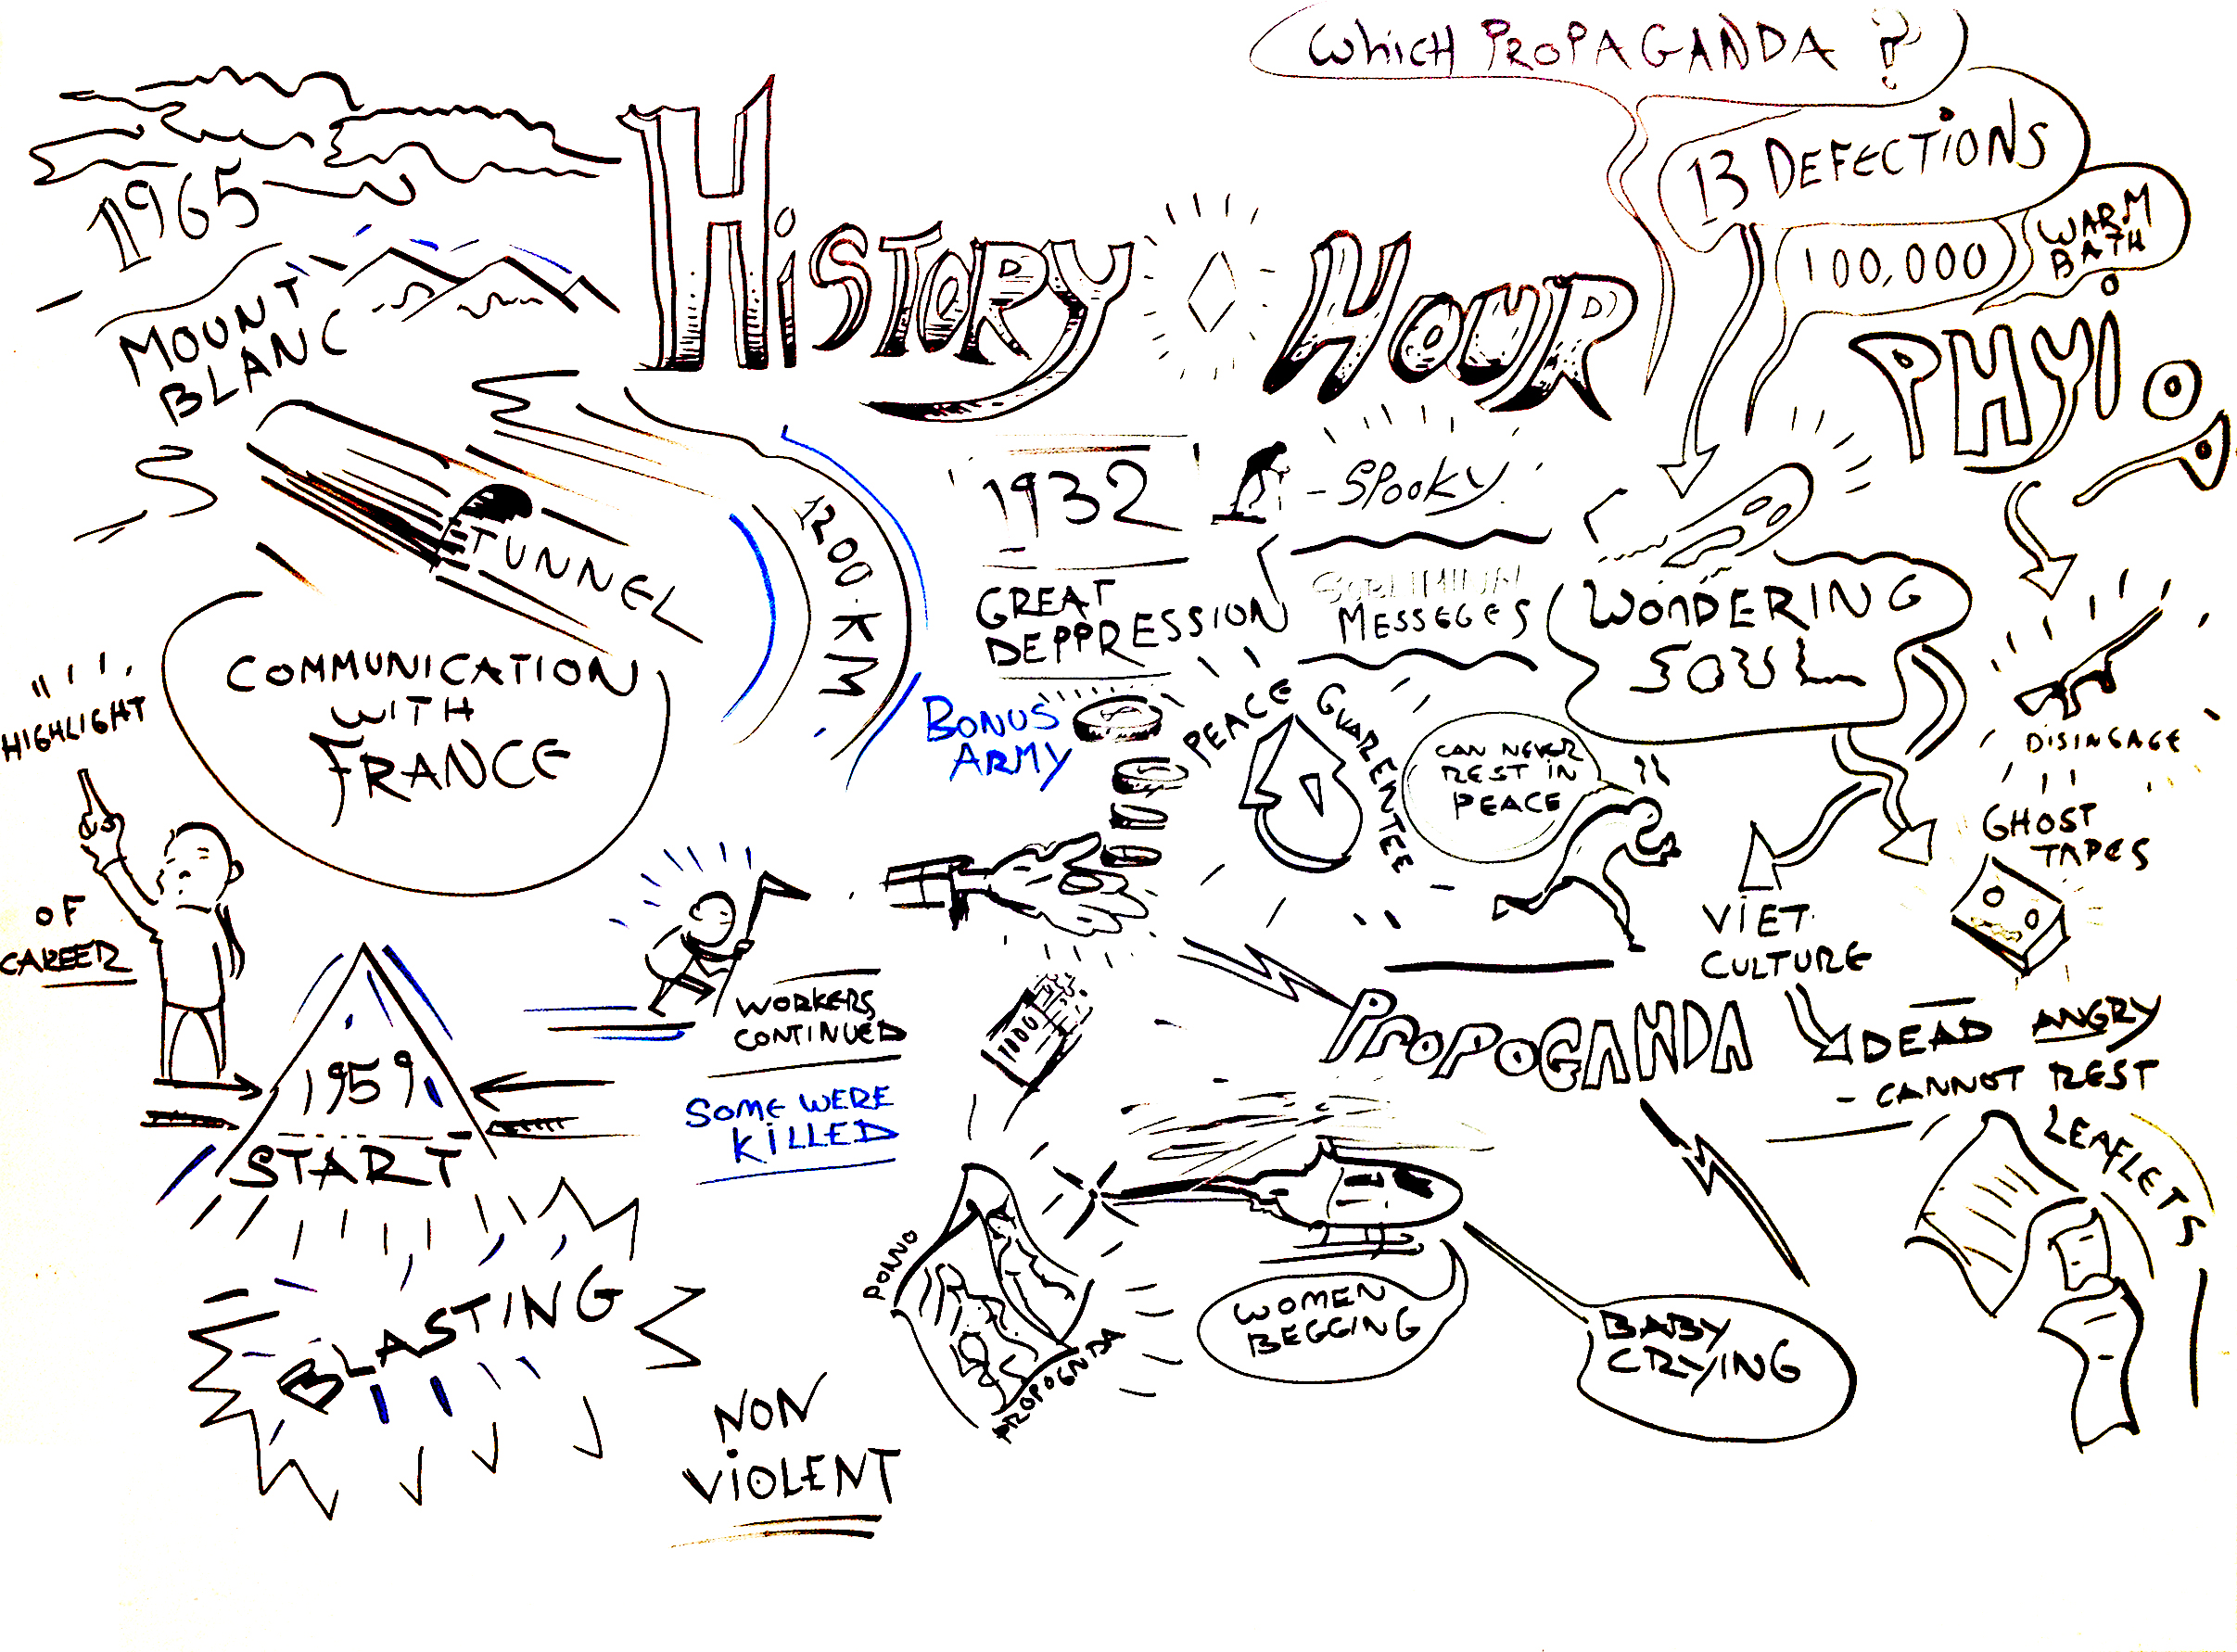 Which PROPAGANDA ?
13 DEFECTIONS
100,000
WARM
BATH
PHYiO
HISTORY HOUR
1965
MOUNT
BLANC
TUNNEL
1200 KM
COMMUNICATION
WITH
FRANCE
HIGHLIGHT
OF
CAREER
1959
START
BLASTING
WORKERS
CONTINUED
SOME WERE
KILLED
NON
VIOLENT
1932
GREAT
DEPPRESSION
BONUS
ARMY
1000
- SPOOKY
MESSEGES
PEACE
GUARENTEE
CAN NEVER
REST IN
PEACE
WONDERING
SOUL
DISINGAGE
GHOST
TAPES
VIET
CULTURE
DEAD ANGRY
- CANNOT REST
LEAFLETS
PROPOGANDA
PONNO
PROPOGNDA
WOMEN
BEGGING
BABY
CRYING